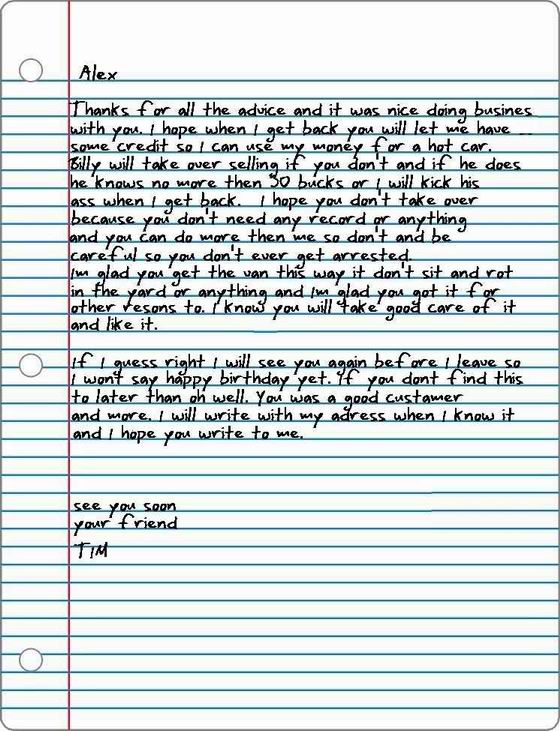 Alex
Thanks for all the advice and it was nice doing busines
with you. I hope when I get back you will let me have
some credit so I can use my money for a hot car.
Billy will take over selling if you don't and if he does
he knows no more then 50 bucks or I will kick his
ass when I get back. I hope you don't take over
because you don't need any record or anything
and you can do more then me so don't and be
careful so you don't ever get arrested.
Im glad you get the van this way it don't sit and rot
in the yard or anything and Im glad you got it for
other resons to. I know you will take good care of it
and like it.
If I guess right I will see you again before I leave so
I wont say happy birthday yet. If you dont find this
to later than oh well. You was a good custamer
and more. I will write with my adress when I know it
and I hope you write to me.
see you soon
your friend
TIM